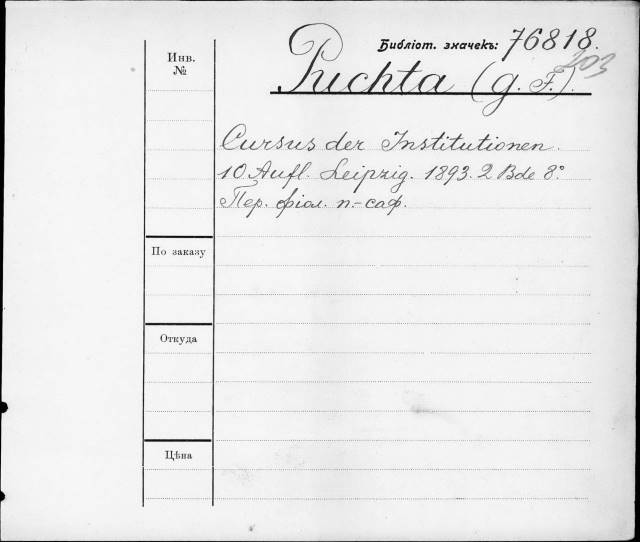 Библіот. значекъ: 76818.
203
Инв. №
Puchta (G. F.).
Cursus der Institutionen.
10 Aufl. Leipzig. 1893. 2 Bde 8°.
Пер. фіол. п.-саф.
По заказу
Откуда
Цѣна